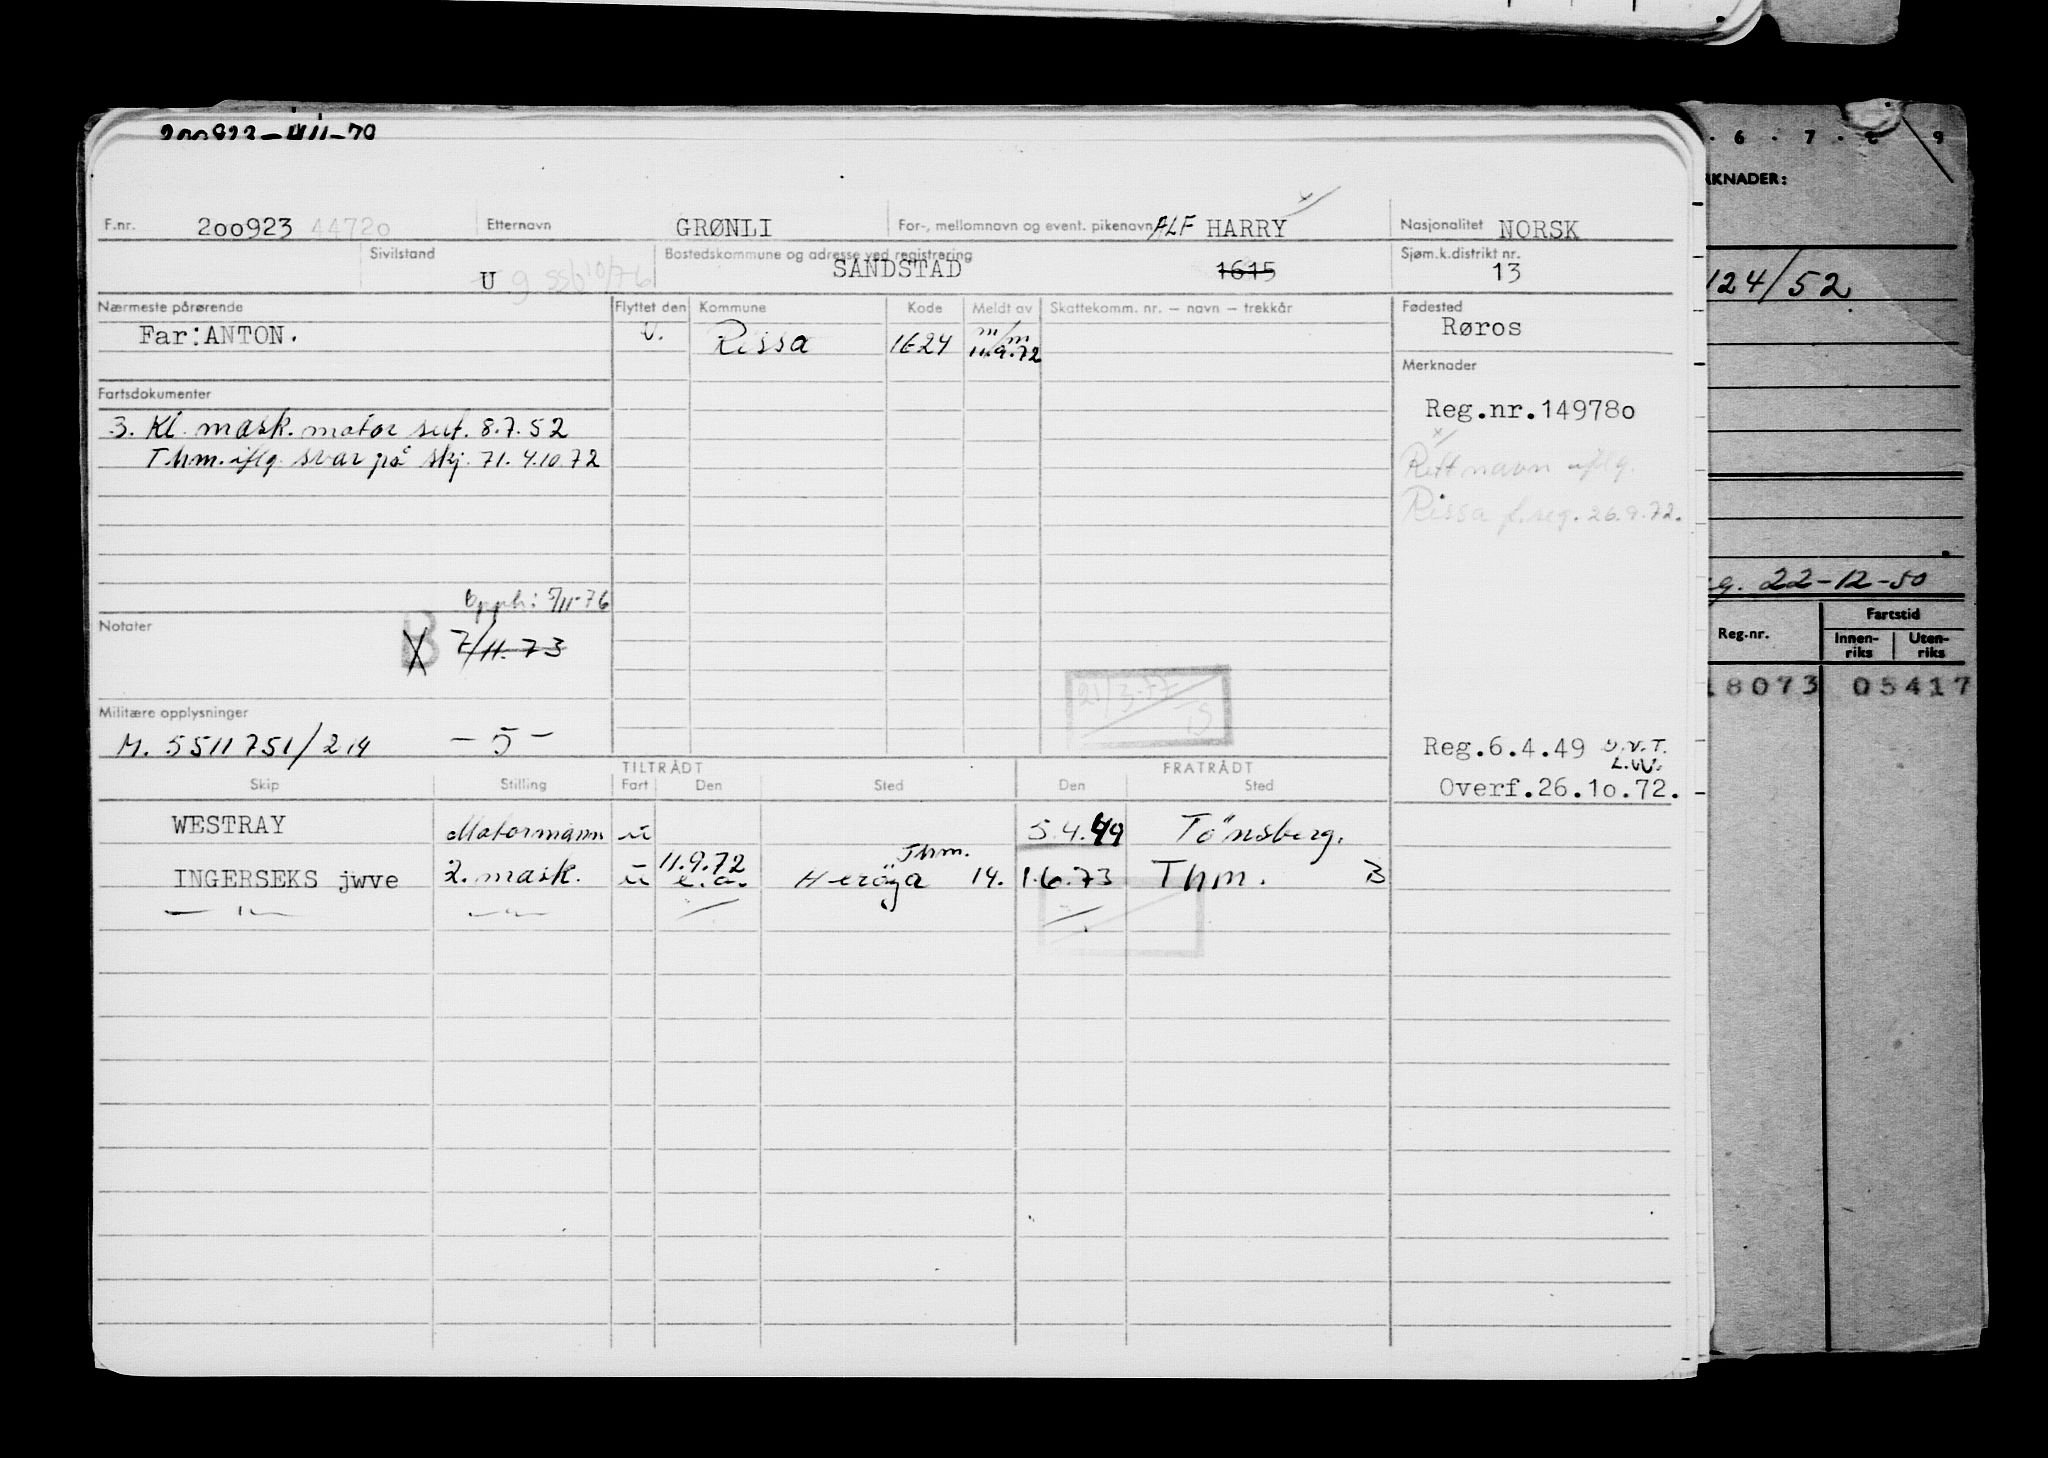 F.nr. 200923 44720 Etternavn GRØNLI For-, mellomnavn og event. pikenavn ALF HARRY Nasjonalitet NORSK
Sivilstand U g Bostedskommune og adresse ved registrering SANDSTAD 1615 Sjøm.k.distrikt nr. 13
Nærmeste pårørende Flyttet den Kommune Kode Meldt av Skattekomm. nr. – navn – trekkår Fødested
Far: ANTON. U. Rissa 1624 m/m 11.9.72 Røros
Merknader
Fartsdokumenter
Reg.nr.149780
3. Kl. mask. motor sert. 8.7.52
Thm. iflg. svar på skj. 71. 4.10.72
Rett navn iflg.
Rissa f.reg. 26.9.72.
Opph: 5/11-76
Notater B 7/11.73
21/3-77
Militære opplysninger
M. 5511751/214 – 5 –
Reg.6.4.49
Overf.26.10.72.
TILTRÅDT FRATRÅDT
Skip Stilling Fart Den Sted Den Sted
WESTRAY Motormann u 5.4.49 Tönsberg.
INGERSEKS jwve 2. mask. u 11.9.72 Thm. Heröya 14. 1.6.73 Thm. B
6 · 7 · 8 9
RKNADER:
124/52
g. 22-12-50
Reg.nr. Fartstid
Innen-riks Uten-riks
18073 05417